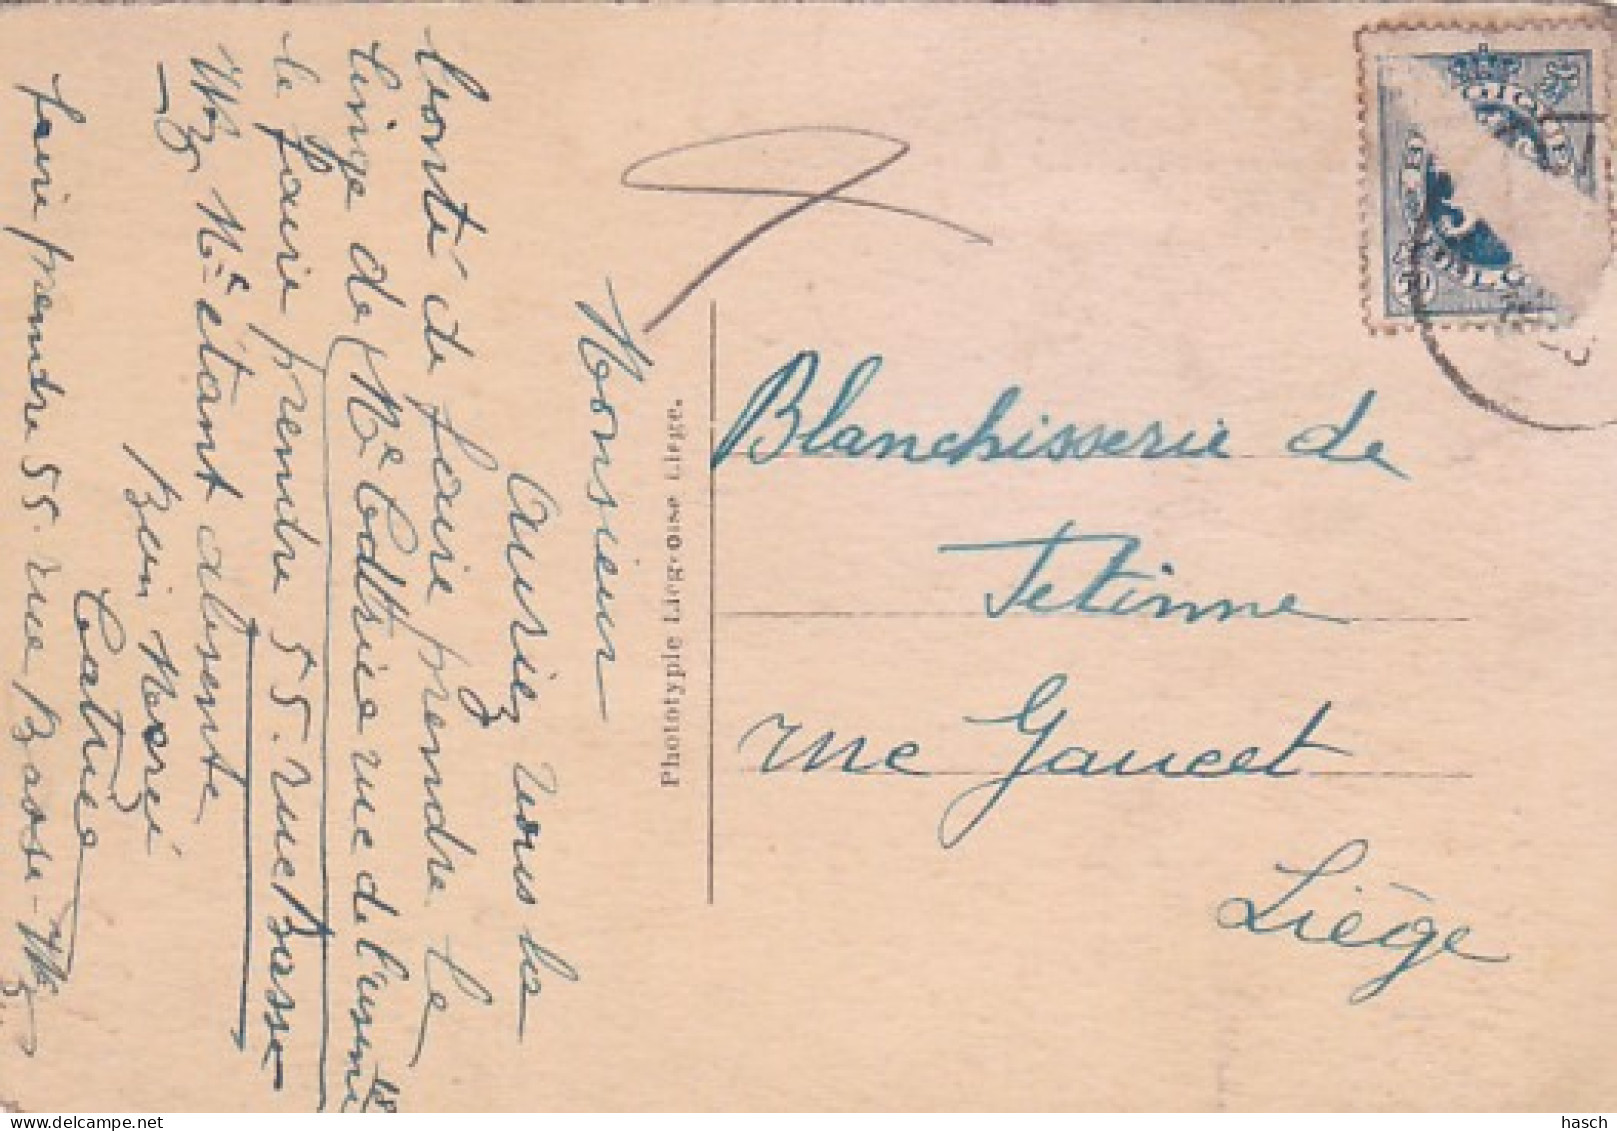 Monsieur
Auriez vous la
bonté de faire prendre le
linge de Me CotTria rue de l'usine 18
le faire prendre 55. rue Basse-
Wez Me étant absente
Bien Merci
faire prendre 55. rue Basse-Wez
Phototypie Liégeoise Liége.
Blanchisserie de
Tetinne
rue Gaucet
Liège
hasch